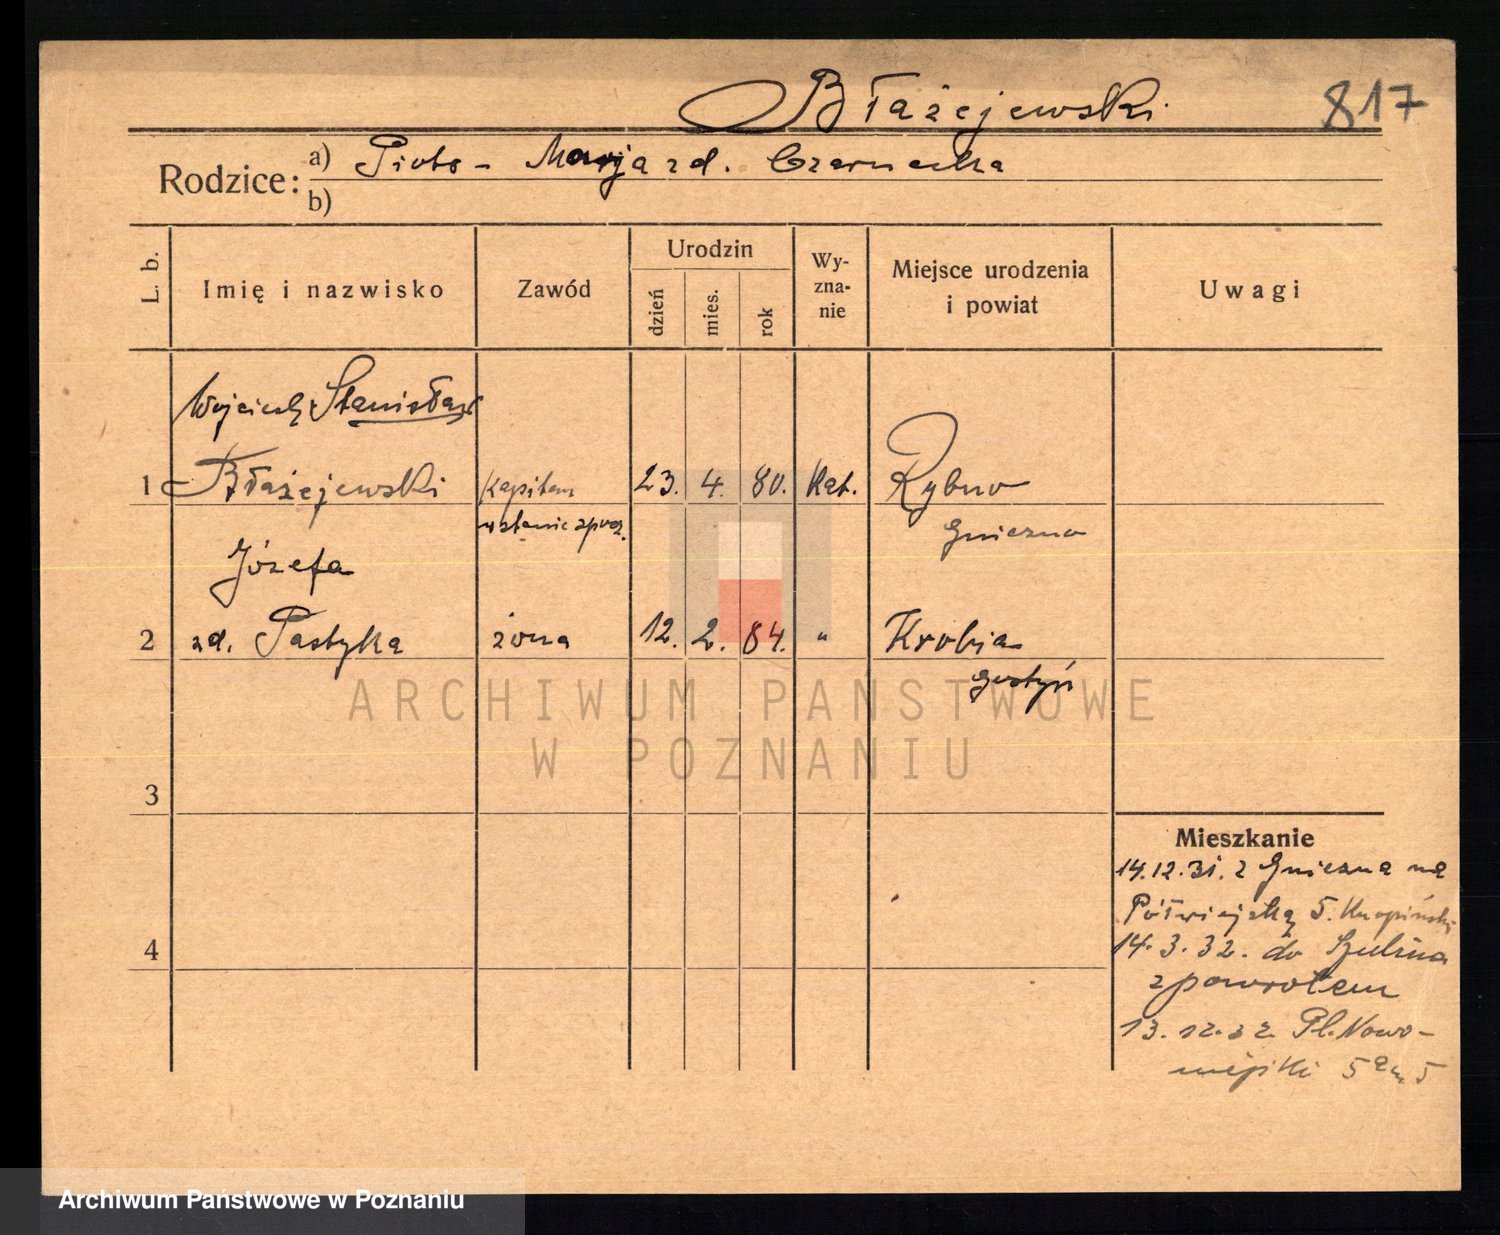 Błażejewski 817
Rodzice: a) Piotr - Marja zd. Czarnecka
b)
L. b. Imię i nazwisko Zawód Urodzin dzień mies. rok Wy- zna- nie Miejsce urodzenia i powiat Uwagi
Wojciech Stanisław
1 Błażejewski Kapitan 23. 4. 80. Kat. Rybno
w stanie spocz. Gniezno
Józefa
2 zd. Pastyka żona 12. 2. 84. " Krobia
Gostyń
ARCHIWUM PAŃSTWOWE
W POZNANIU
3
Mieszkanie
14.12.31. z Gniezna na
Półwiejską 5.
4
14.3.32. do
z powrotem
13.12.32 Pl. Nowo-
miejski 5a m 5
Archiwum Państwowe w Poznaniu